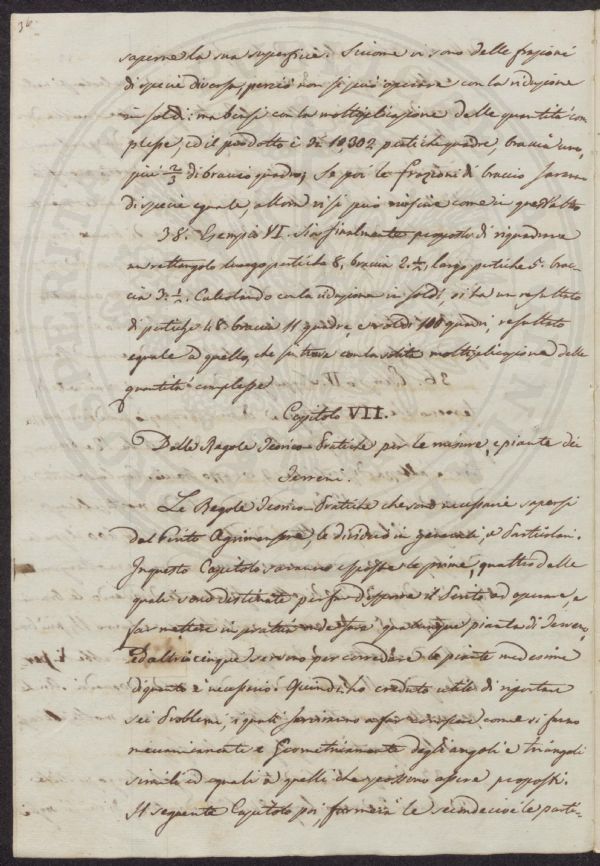 36
saperne la sua superficie. Siccome vi sono delle frazioni
di specie diversa, perciò non si può operare con la riduzione
in soldi: ma bensì con la moltiplicazione delle quantità com-
plesse, ed il prodotto è di 10,302 pertiche quadre, braccia uno,
più 2/3 di braccio quadro; Se poi le frazioni di braccio saranno
di specie eguale, allora vi si può riuscire come in quest'altro
38. Esempio VI. Sia finalmente proposto di riquadrare
un rettangolo lungo pertiche 8, braccia 2. 1/2, largo pertiche 5. brac-
cia 3. 1/2. Calcolando con la riduzione in soldi, si ha un resultato
di pertiche 48 braccia 11 quadre, e soldi 100 quadri, resultato
eguale a quello, che si trova con la solita moltiplicazione delle
quantità complesse
Capitolo VII.
Delle Regole Teorico-Pratiche per le misure, e piante dei
Terreni.
Le Regole Teorico-Pratiche che sono necessarie sapersi
dal Perito Agrimensore, le divideró in generali, e Particolari.
In questo Capitolo saranno esposte le prime, quattro delle
quali sono destinate per far disporre il Perito ad operare, e
far mettere in pratica qualunque pianta di Terreno,
ed altri cinque servono per corredare le piante medesime
di quanto è necessario. Quindi ho creduto utile di riportare
sei Problemi, i quali come si fanno
meccanicamente e Geometricamente degli angoli e triangoli
simili ed eguali a quelli che possono essere proposti.
Il seguente Capitolo poi, formerà le seindecisi le parti-